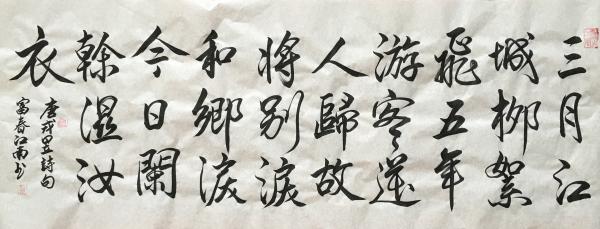 三月江
城柳絮
飛五年
游客送
人歸故
將别淚
和鄉淚
今日闌
幹濕汝
衣
唐戎昱詩句
富春江南书